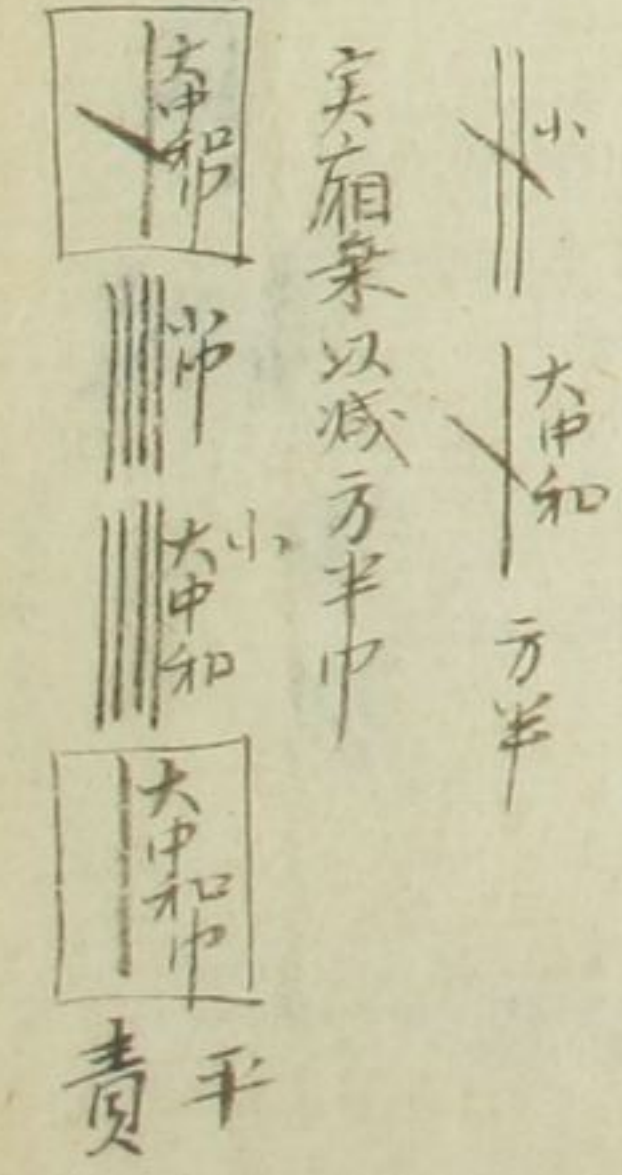 小 大中和 方半
実廂乗以減方半巾
大中和巾 小巾 小大中和 大中和巾 平責